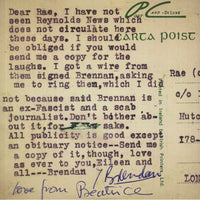 Dear Rae, I have not
seen Reynolds News which
does not circulate here
these days. I should
be obliged if you would
send me a copy for the
laughs. I got a wire from
them signed Brennan, asking
me to ring then, which I did
not because said Brennan is
an ex-Fascist and a scab
journalist. Don't bother ab-
out it, for sake.
All publicity is good except
obituary notice---Send me
a copy of it, though. Love
as ever to you, Eileen and
all---Brendan
Brendan
love from Beatrice
CARTA POIST
Rae (
c/o
Hutc
178-
LON